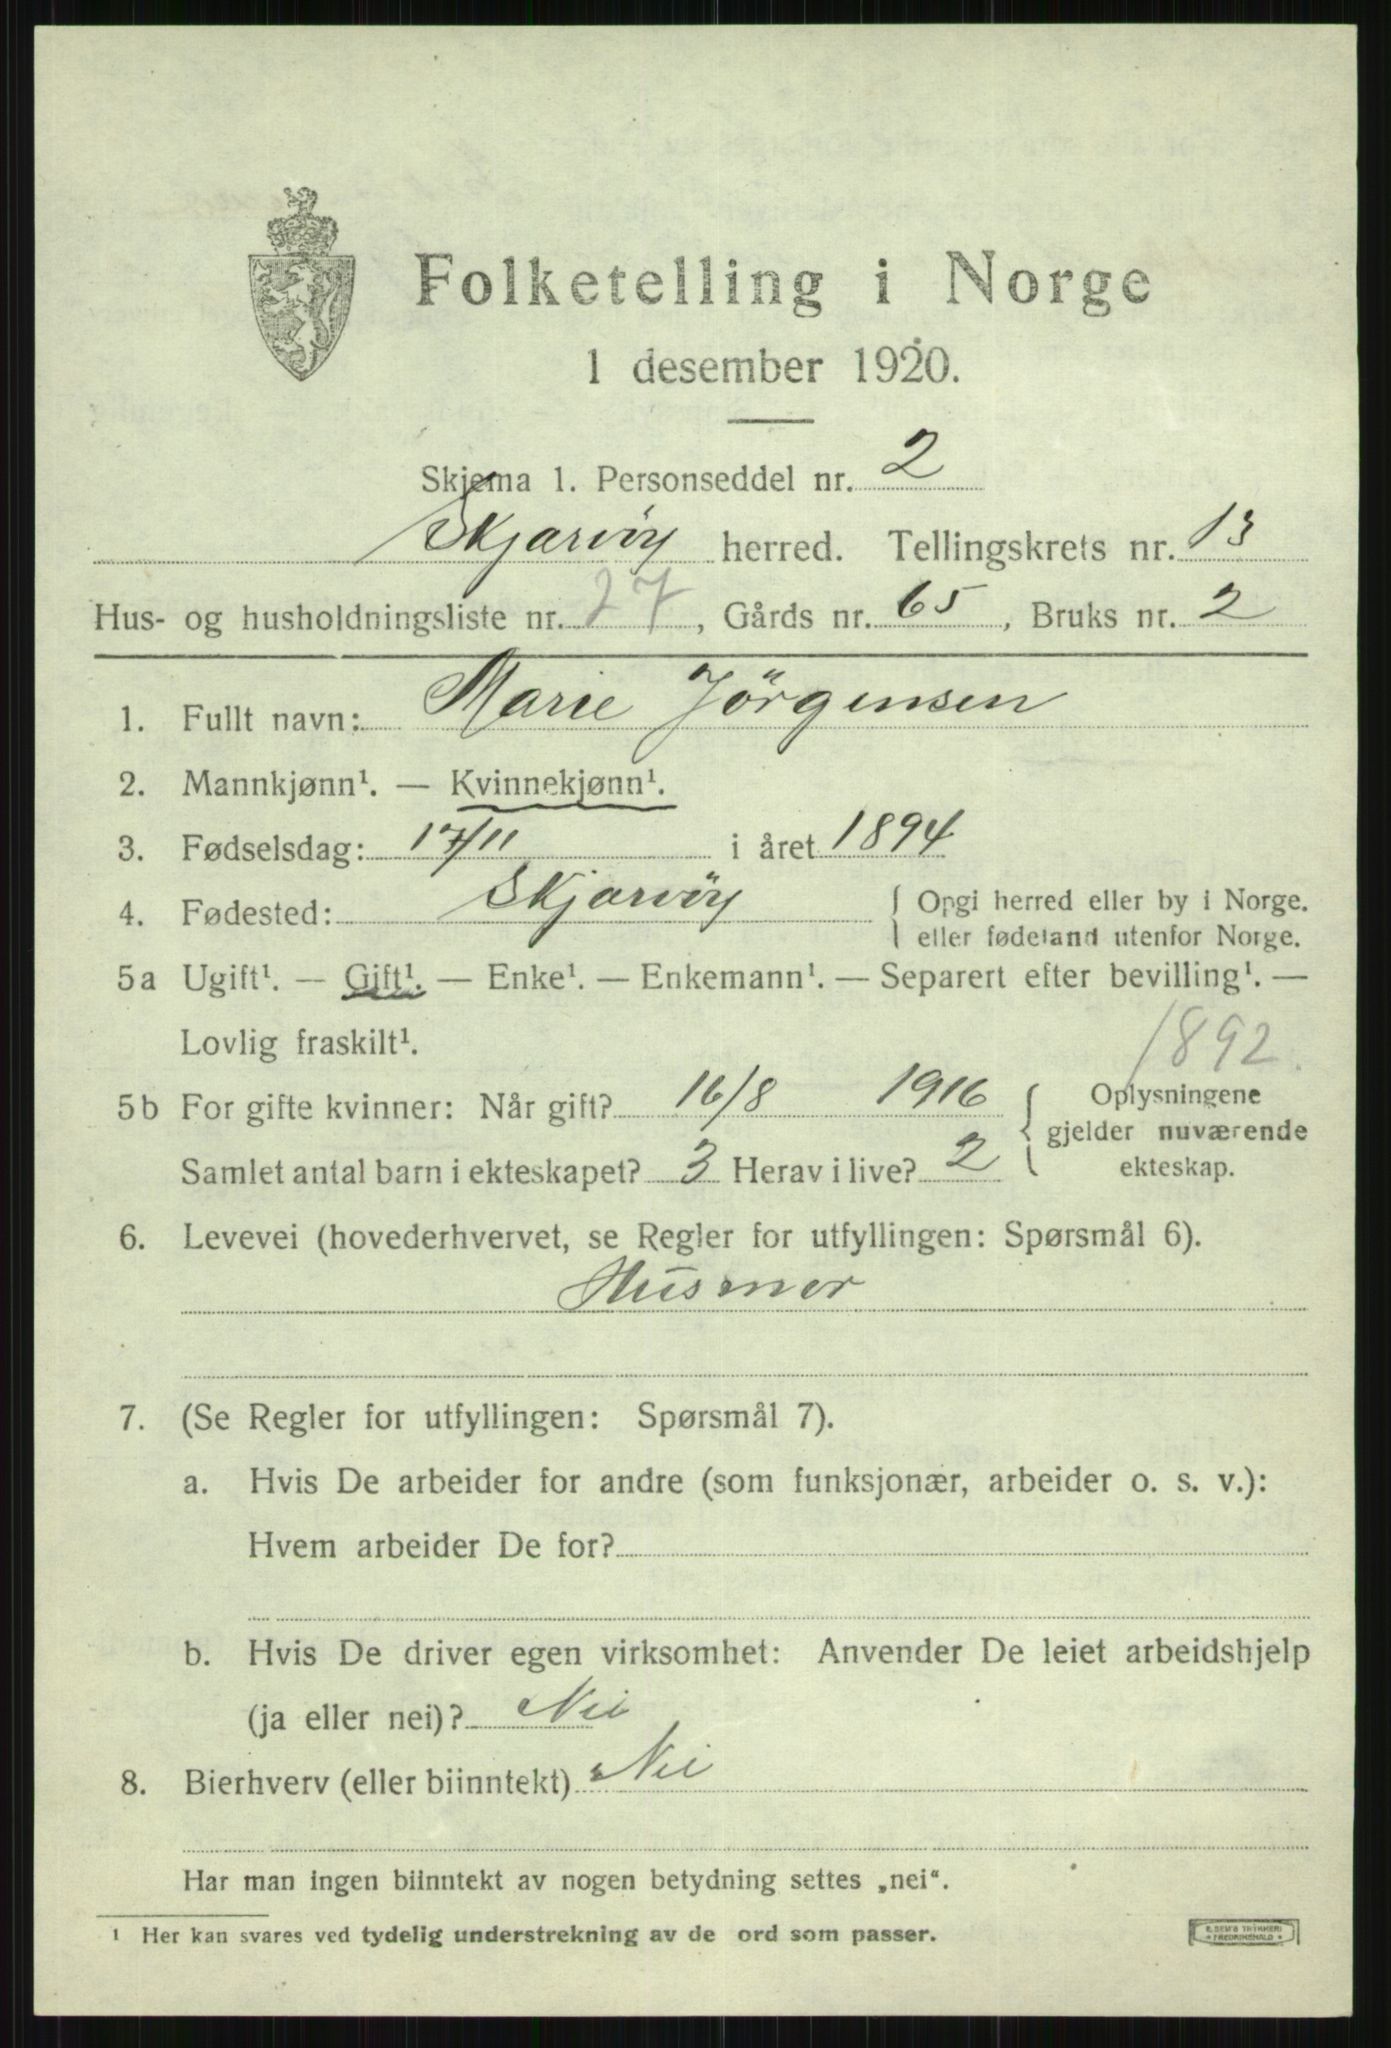 Folketelling i Norge
1 desember 1920.
Skjema 1. Personseddel nr. 2
Skjervöy herred. Tellingskrets nr. 13
Hus- og husholdningsliste nr. 27, Gårds nr. 65, Bruks nr. 2
1. Fullt navn: Marie Jörgensen
2. Mannkjønn¹. — Kvinnekjønn¹.
3. Fødselsdag: 17/11 i året 1894
4. Fødested: Skjervöy { Opgi herred eller by i Norge.
eller fødeland utenfor Norge.
5a Ugift¹. — Gift¹. — Enke¹. — Enkemann¹. — Separert efter bevilling¹. —
Lovlig fraskilt¹.
1892.
5b For gifte kvinner: Når gift? 16/8 1916 { Oplysningene
gjelder nuværende
Samlet antal barn i ekteskapet? 3 Herav i live? 2 ekteskap.
6. Levevei (hovederhvervet, se Regler for utfyllingen: Spørsmål 6).
Husmor
7. (Se Regler for utfyllingen: Spørsmål 7).
a. Hvis De arbeider for andre (som funksjonær, arbeider o. s. v.):
Hvem arbeider De for?
b. Hvis De driver egen virksomhet: Anvender De leiet arbeidshjelp
(ja eller nei)? Nei
8. Bierhverv (eller biinntekt) Nei
Har man ingen biinntekt av nogen betydning settes „nei“.
¹ Her kan svares ved tydelig understrekning av de ord som passer.
E. SEM'S TRYKKERI
FREDRIKSHALD